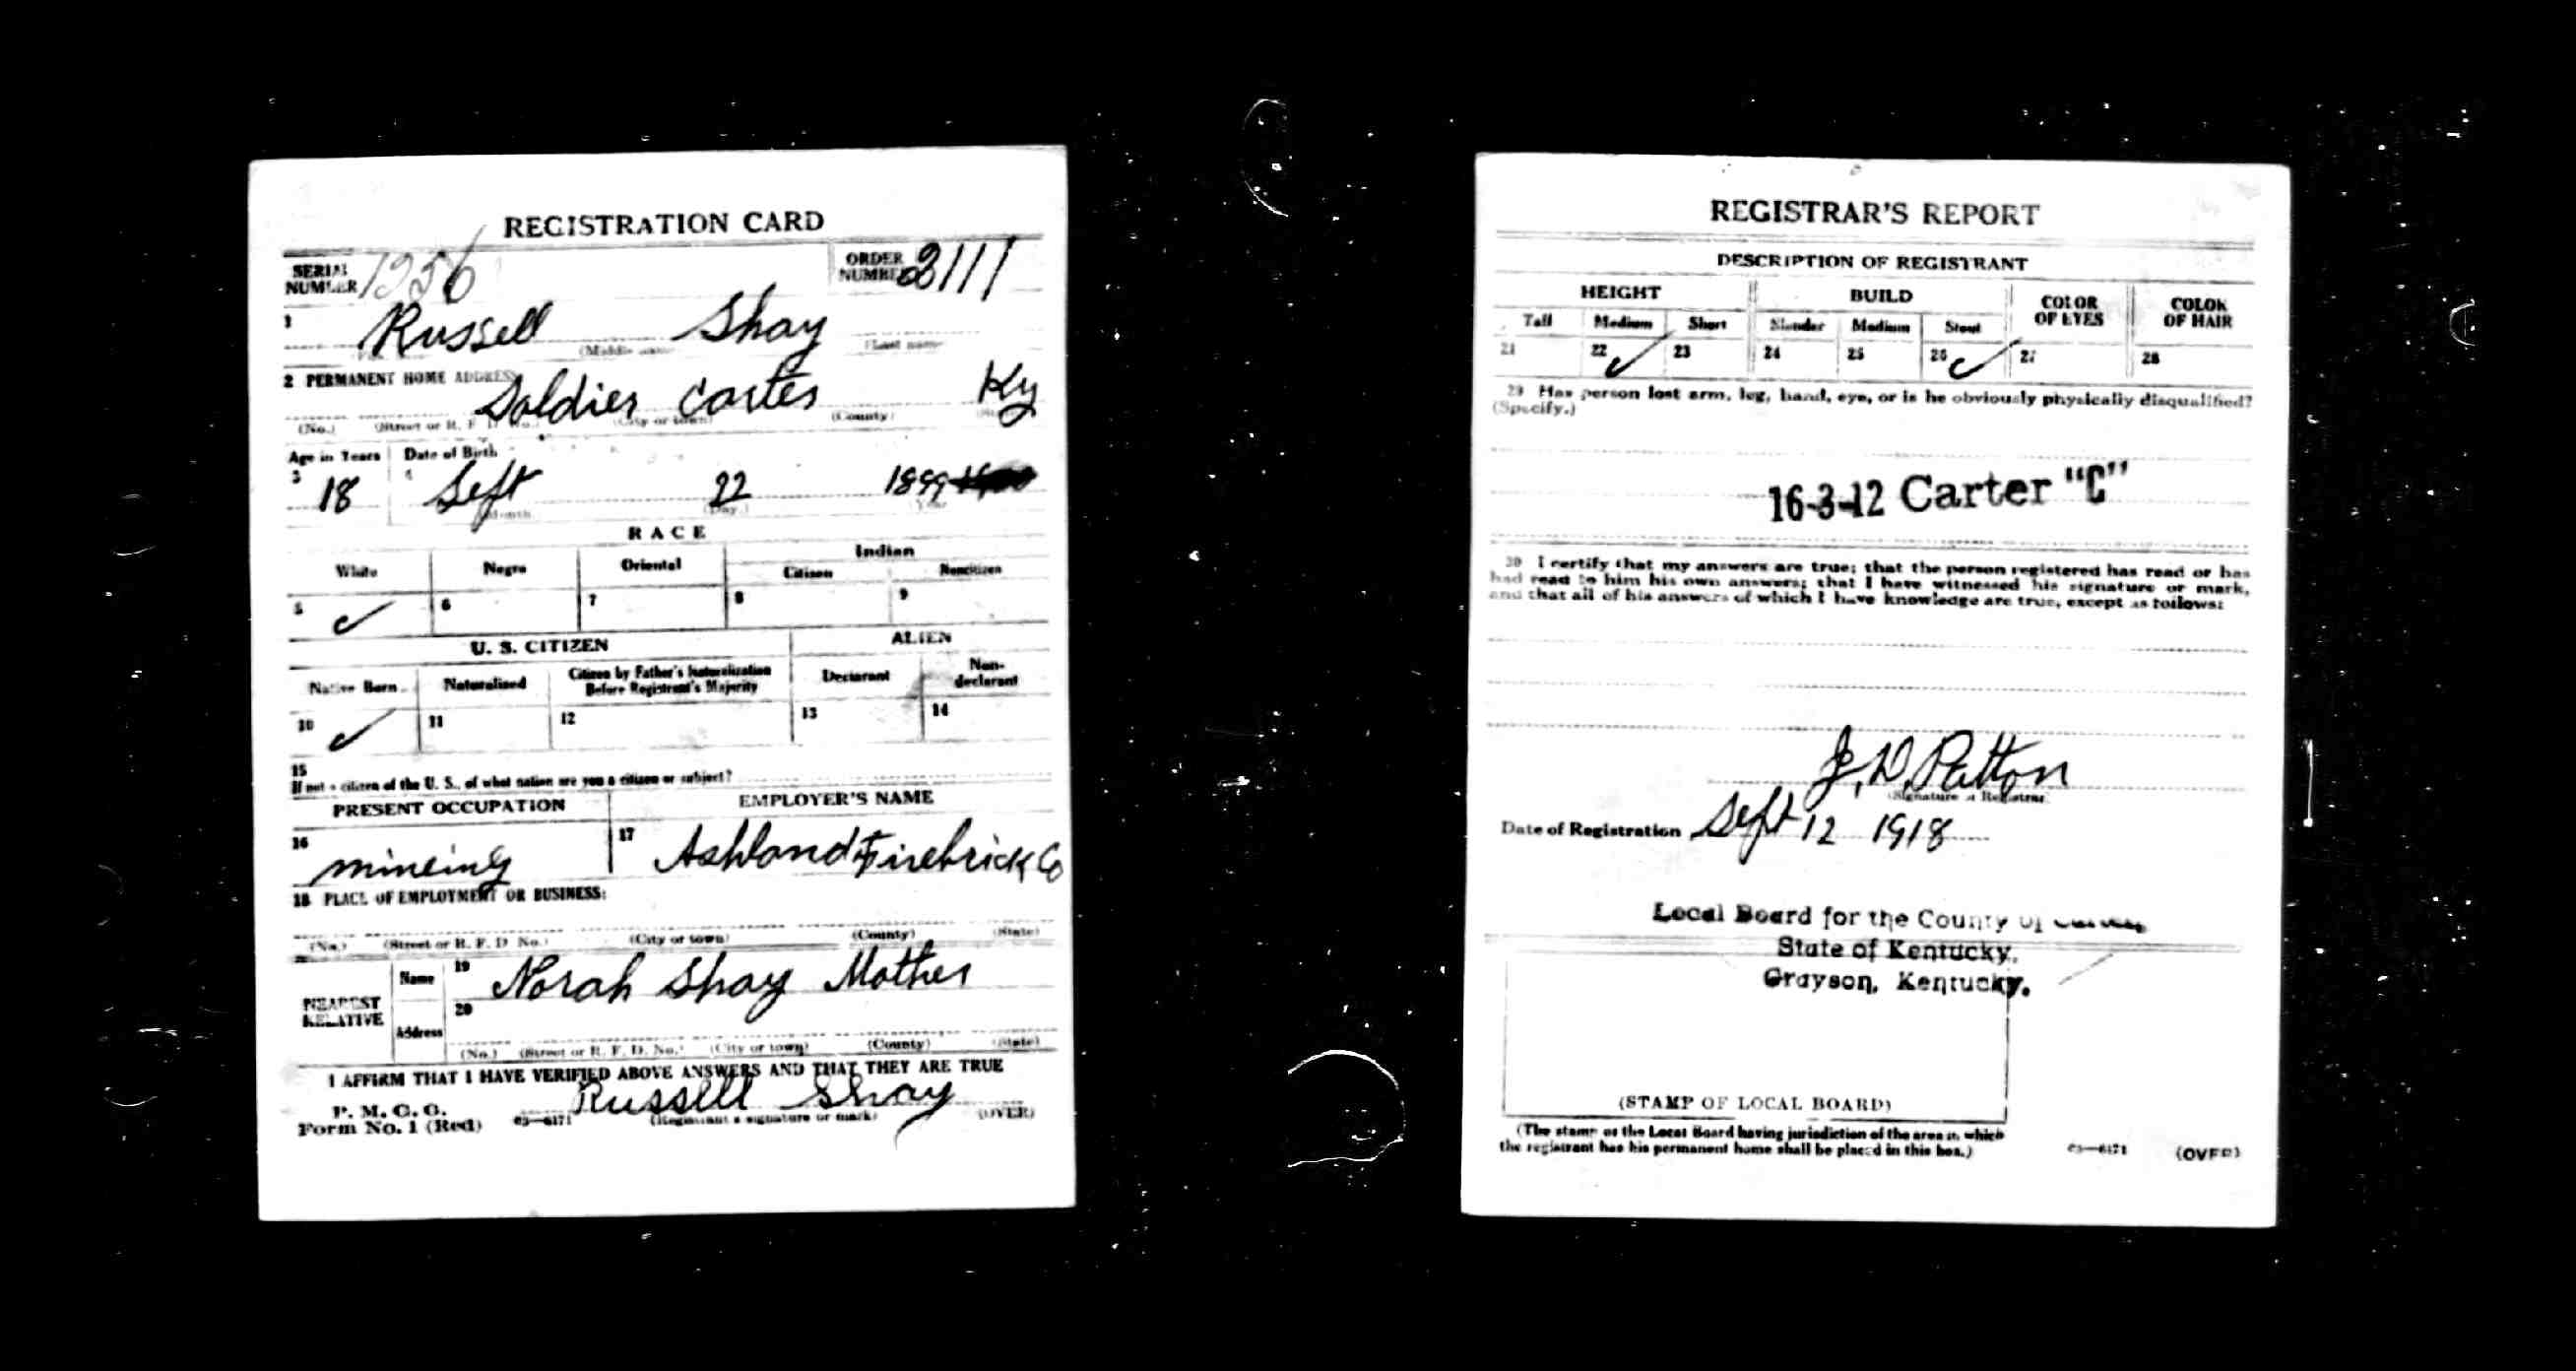 REGISTRATION CARD
SERIAL NUMBER 1256 ORDER NUMBER 3111
1 Russell Shay
(Middle name) (Last name)
2 PERMANENT HOME ADDRESS
Soldier Carter Ky
(No.) (Street or R. F. D. No.) (City or town) (County)
Age in Years Date of Birth
3 18 4 Sept 22 1899
(Month) (Day.) (Year
RACE
White Negro Oriental Indian
Citizen Noncitizen
5 ✓ 6 7 8 9
U. S. CITIZEN ALIEN
Native Born Naturalized Citizen by Father's Naturalization Before Registrant's Majority Declarant Non-declarant
10 ✓ 11 12 13 14
15
If not a citizen of the U. S., of what nation are you a citizen or subject?
PRESENT OCCUPATION EMPLOYER'S NAME
16 mineing 17 Ashland Firebrick Co
18 PLACE OF EMPLOYMENT OR BUSINESS:
(No.) (Street or R. F. D. No.) (City or town) (County) (State)
NEAREST RELATIVE
Name 19 Norah Shay Mother
Address 20
(No.) (Street or R. F. D. No.) (City or town) (County) (State)
I AFFIRM THAT I HAVE VERIFIED ABOVE ANSWERS AND THAT THEY ARE TRUE
P. M. G. O.
Form No. 1 (Red) 03—6171 Russell Shay (OVER)
(Registrant's signature or mark)
REGISTRAR'S REPORT
DESCRIPTION OF REGISTRANT
HEIGHT BUILD COLOR OF EYES COLOR OF HAIR
Tall Medium Short Slender Medium Stout
21 22 ✓ 23 24 25 26 ✓ 27 28
29 Has person lost arm, leg, hand, eye, or is he obviously physically disqualified?
(Specify.)
16-3-12 Carter "C"
30 I certify that my answers are true; that the person registered has read or has
had read to him his own answers; that I have witnessed his signature or mark,
and that all of his answers of which I have knowledge are true, except as follows:
J. D. Patton
(Signature of Registrar)
Date of Registration Sept 12 1918
Local Board for the County of
State of Kentucky,
Grayson, Kentucky.
(STAMP OF LOCAL BOARD)
(The stamp of the Local Board having jurisdiction of the area in which
the registrant has his permanent home shall be placed in this box.)
03—6171 (OVER)